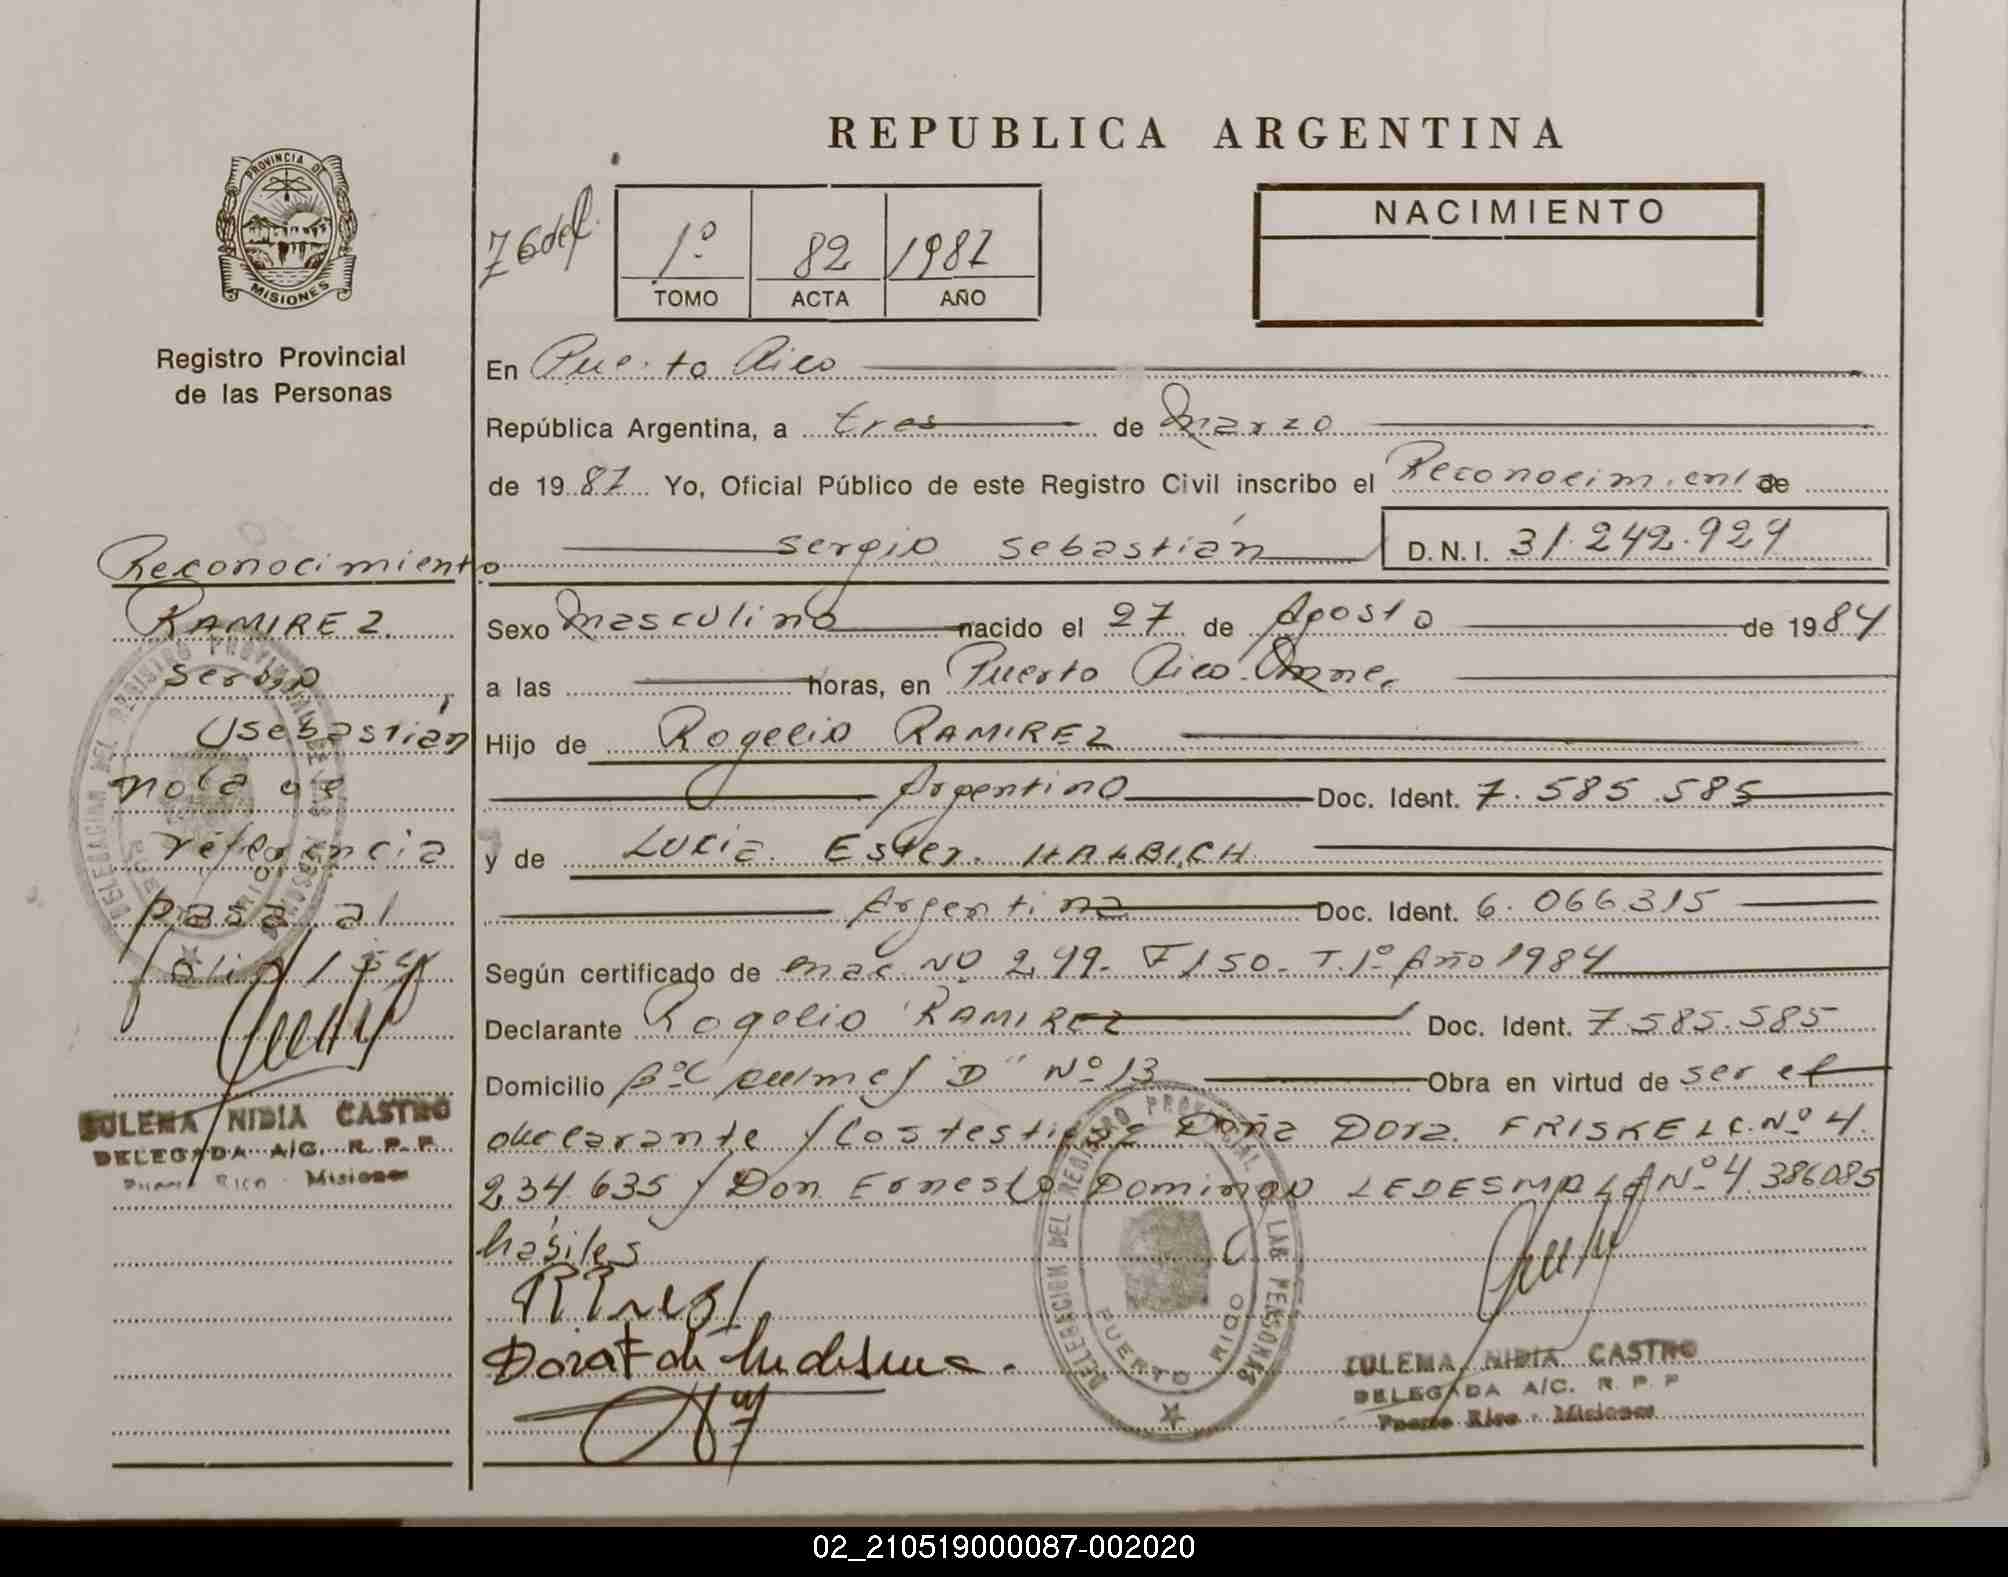 REPUBLICA ARGENTINA
PROVINCIA DE
MISIONES
Registro Provincial
de las Personas
76 def.
1º 82 1987
TOMO ACTA AÑO
NACIMIENTO
En Puerto Rico
República Argentina, a tres de Marzo
de 1987 Yo, Oficial Público de este Registro Civil inscribo el Reconocimiento de
Sergio Sebastián D.N.I. 31.242.929
Sexo Masculino nacido el 27 de Agosto de 1984
a las horas, en Puerto Rico.
Hijo de Rogelio RAMIREZ
Argentino Doc. Ident. 7.585.585
y de Lucia Ester HALBICH
Argentina Doc. Ident. 6.066.315
Según certificado de Nº 299. F 150. T.1º Año 1984
Declarante Rogelio RAMIREZ Doc. Ident. 7.585.585
Domicilio "D" Nº 13 Obra en virtud de ser el
declarante Doña Dora FRISKE L.C. Nº 4.
234.635 y Don Ernesto Domingo LEDESMA Nº 4.386085
hábiles
Reconocimiento
RAMIREZ
Sergio
Sebastián
nota de
referencia
pasa al
folio 154
ZULEMA NIDIA CASTRO
DELEGADA A/C. R. P. P.
Puerto Rico - Misiones
DELEGACION DEL REGISTRO PROVINCIAL DE LAS PERSONAS
PUERTO RICO
ZULEMA NIDIA CASTRO
DELEGADA A/C. R. P. P
Puerto Rico - Misiones
02_210519000087-002020